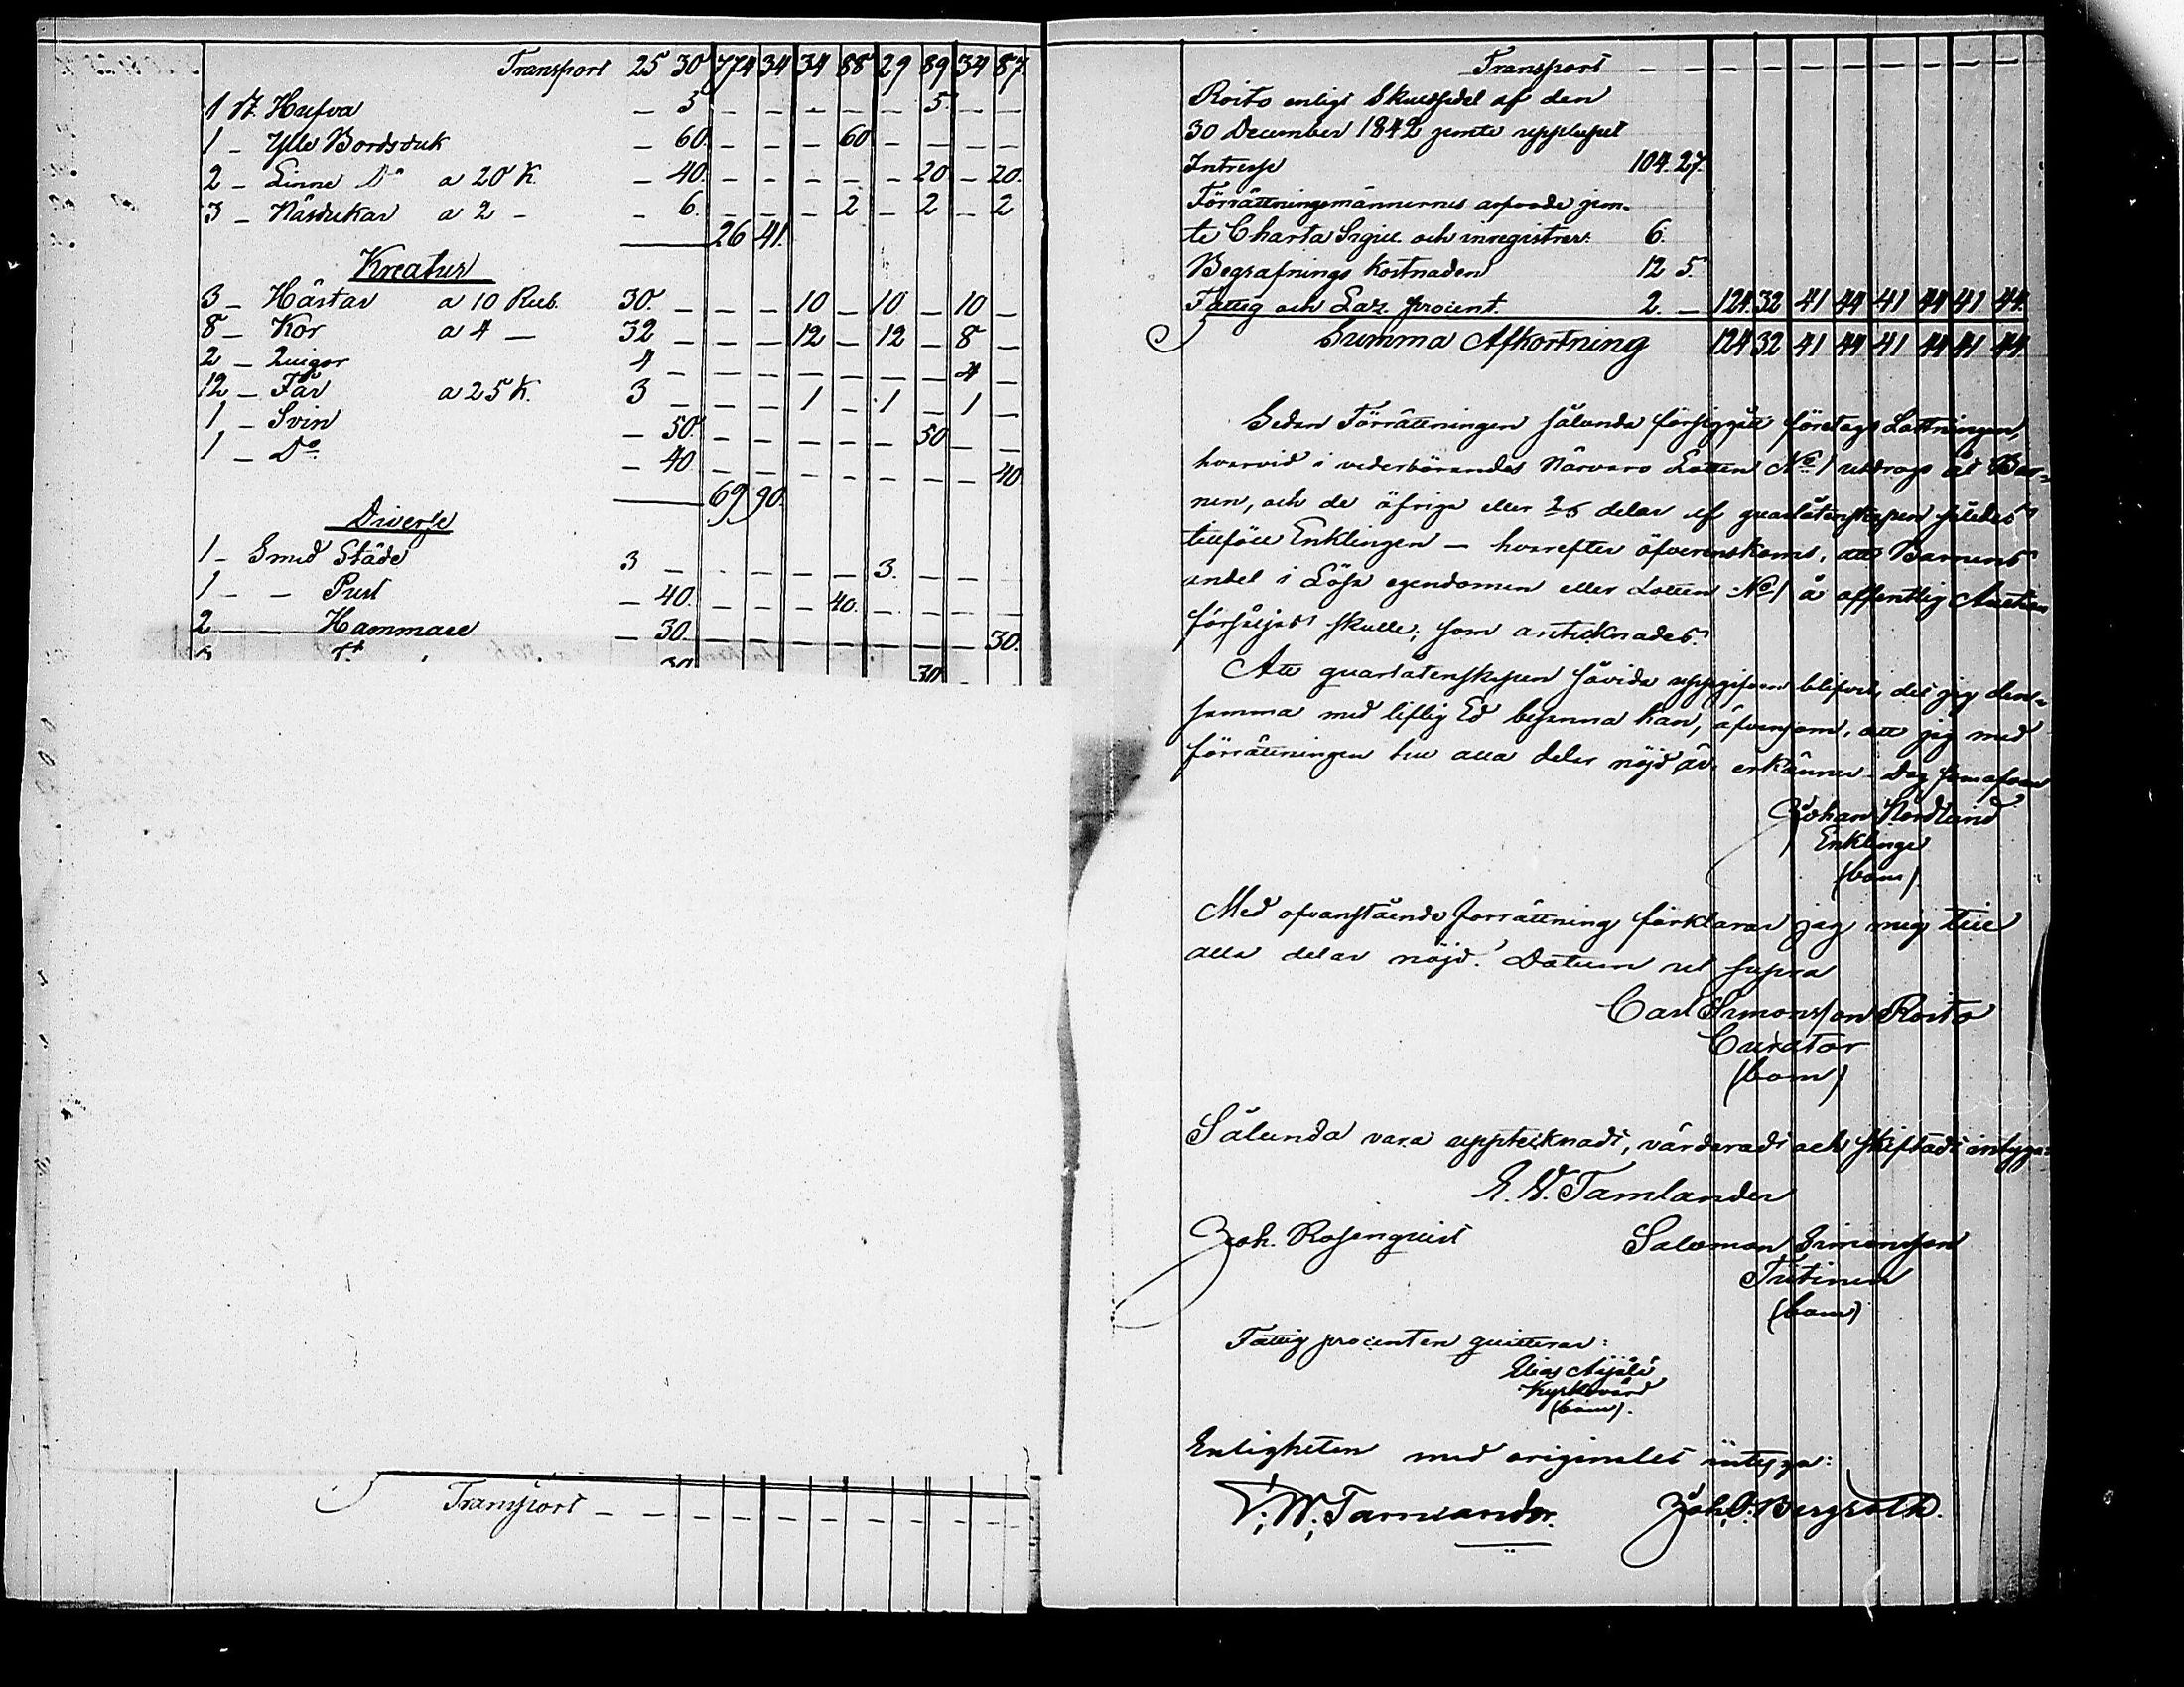 Transport 25 30 774 34 34 88 29 89 34 87
1 st. Hufva — 5 — — — — — 5 — —
1 — Ylle Bordsduk — 60 — — — 60 — — — —
2 — Linne Do a 20 K. — 40 — — — — — 20 — 20
3 — Näsdukar a 2 — — 6 — — — 2 — 2 — 2
26 41
Kreatur
3 — Hästar a 10 Rub. 30 — — — 10 — 10 — 10 —
8 — Kor a 4 — 32 — — — 12 — 12 — 8 —
2 — Quigor 4 — — — — — — — 4 —
12 — Får a 25 K. 3 — — — 1 — 1 — 1 —
1 — Svin — 50 — — — — — 50 — —
1 — Do — 40 — — — — — — — 40
69 90
Diverse
1 — Smed Städe 3 — — — — — 3 — — —
1 — — Pust — 40 — — — 40 — — — —
2 — — Hammare — 30 — — — — — — — 30
30
Transport — — — — — — — — — —
Transport — — — — — — — — — —
Roito enligt Skuldsedel af den
30 December 1842 jemte upplupet
Intresse 104. 27.
Förrättningsmännernes arfvode jem-
te Charta Sigill. och inregistrer. 6.
Begrafnings kostnaden 12 5.
Fattig och Laz. procent. 2. — 124. 32 41 44 41 44 41 44
Summa Afkortning 124 32 41 44 41 44 41 44
Sedan Förrättningen sålunda försiggått företogs Lottningen,
hvarvid i vederbörandes närvaro Lotten No 1 utdrogs åt Bar-
nen, och de öfriga eller delar af quarlåtenskapen således
tillföll Enklingen — hvarefter öfverenskoms, att Barnens
andel i Lösa egendomen eller Lotten No 1 å offentlig Auction
försäljas skulle; som antecknades.
Att quarlåtenskapen såvida uppgifven blifvit, det jag den-
samma med liflig Ed besanna kan, äfvensom, att jag med
förrättningen till alla delar nöjd är, erkänner. Dag som ofvan
Johan Nordlund
Enklinge
(bom)
Med ofvanstående förrättning förklarar jag mig till
alla delar nöjd. Datum ut supra
Carl Simonsson Roito
Curator
(bom)
Sålunda vara upptecknadt, värderadt och skiftadt intyga:
E. W. Tamlander
Joh. Rosenquist Salomon Simonsson
(bom)
Fattig procenten quitterar:
Elias Äijälä
Kyrkovärd
(bom).
Enligheten med originalet intyga:
E. W. Tamlander. Joh. O. Bergroth.